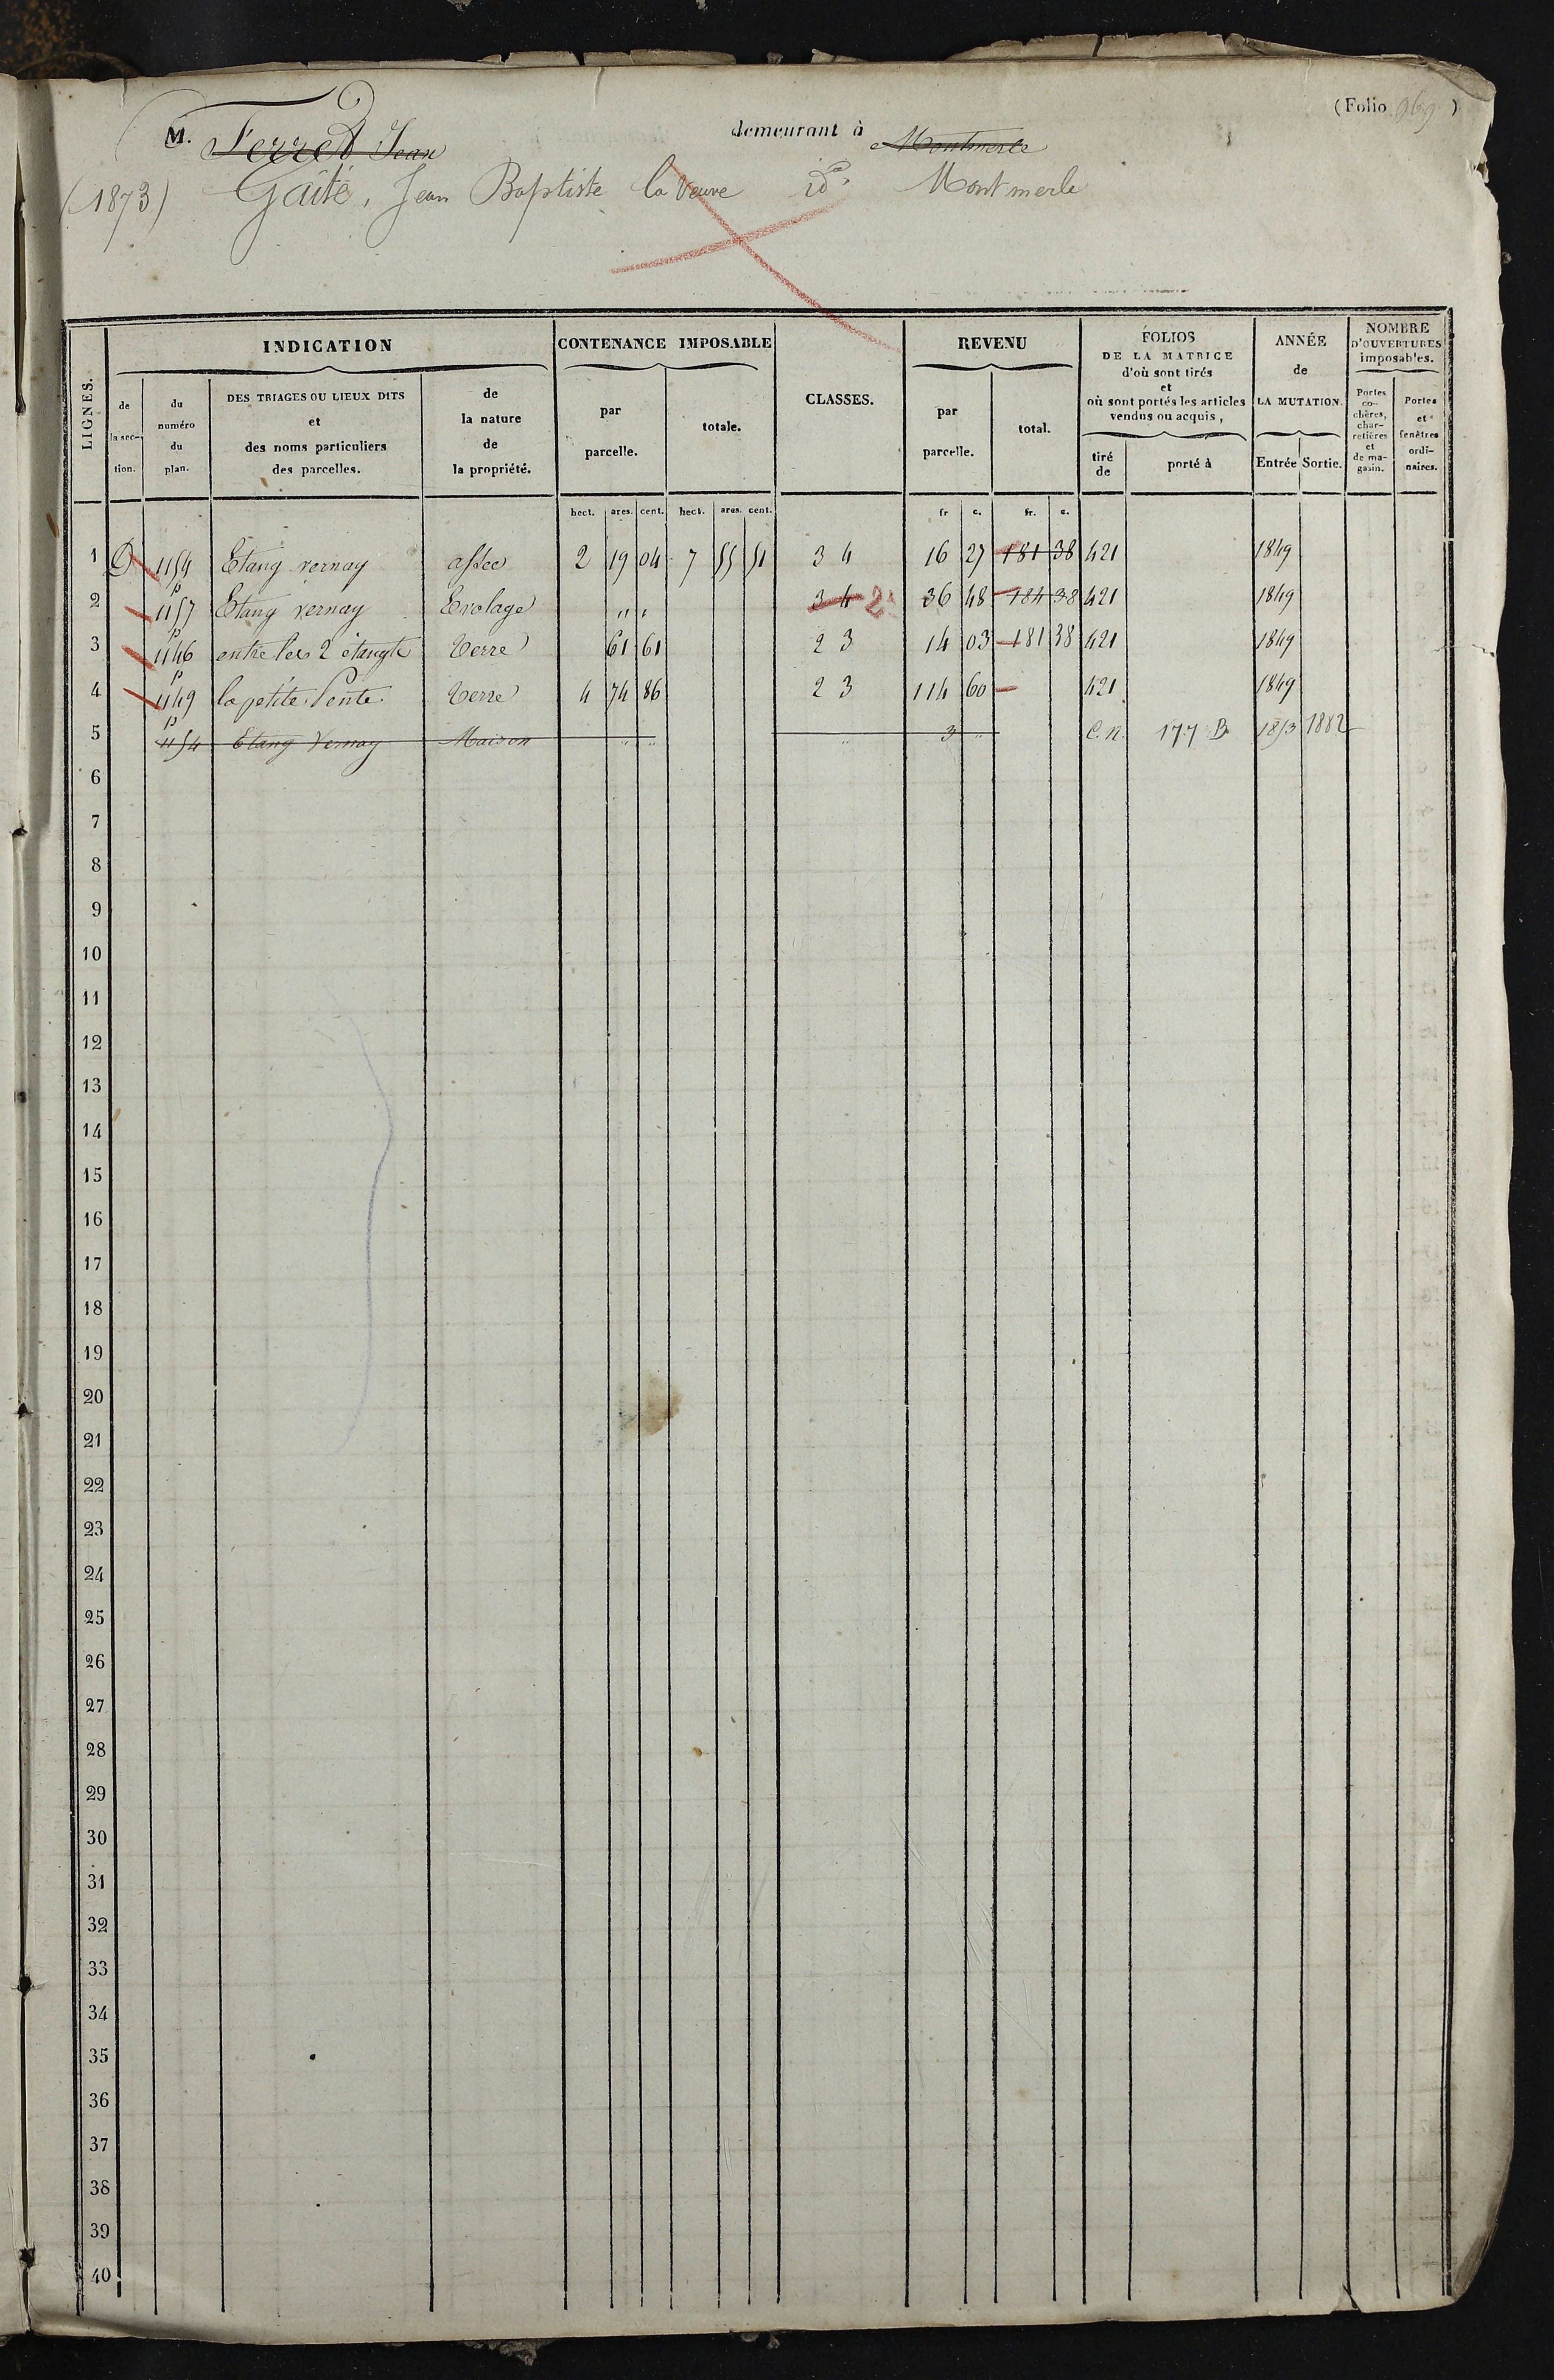 (Folio 969)
M. Ferret Jean demeurant à Montmerle
(1873) Gaité, Jean Baptiste la Veuve id. Montmerle
LIGNES.
INDICATION
CONTENANCE IMPOSABLE
CLASSES.
REVENU
FOLIOS DE LA MATRICE d'où sont tirés et où sont portés les articles vendus ou acquis,
ANNÉE de LA MUTATION.
NOMBRE D'OUVERTURES imposables.
de la section.
du numéro du plan.
DES TRIAGES OU LIEUX DITS et des noms particuliers des parcelles.
de la nature de la propriété.
par parcelle.
totale.
par parcelle.
total.
tiré de
porté à
Entrée
Sortie.
Portes cochères, charretières et de magasin.
Portes et fenêtres ordinaires.
hect. ares. cent. hect. ares. cent. fr c. fr. c.
1 D 1154 Etang vernay assec 2 19 04 7 55 51 3 4 16 27 181 38 421 1849
2 p 1157 Etang vernay Evolage " " 3 4 2 36 48 184 38 421 1849
3 p 1146 entre les 2 étangts Terre 61 61 2 3 14 03 181 38 421 1849
4 p 1149 la petite Pente Terre 4 74 86 2 3 114 60 421 1849
5 p 1154 Etang Vernay Maison " " " 3 " C.n. 177 B 1853 1882
6
7
8
9
10
11
12
13
14
15
16
17
18
19
20
21
22
23
24
25
26
27
28
29
30
31
32
33
34
35
36
37
38
39
40